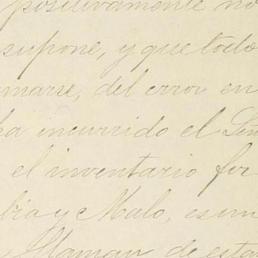 positivamente no
supone, y que todo
marse, del error en
ha incurrido el Señ
el inventario for
bia y Malo, es un
llaman de esta